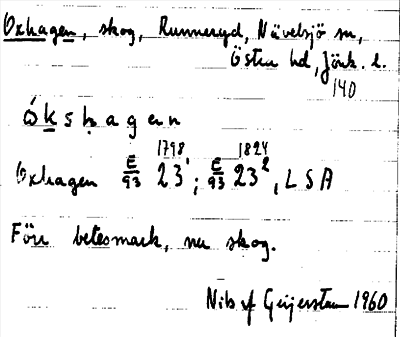 Oxhagen, skog, Runneryd, Nävelsjö sn,
Östra hd, Jönk. l.
140
ókshagen
1798 1824
Oxhagen E/93 23¹; E/93 23², LSA
Förr betesmark, nu skog.
Nils af Geijerstam 1960